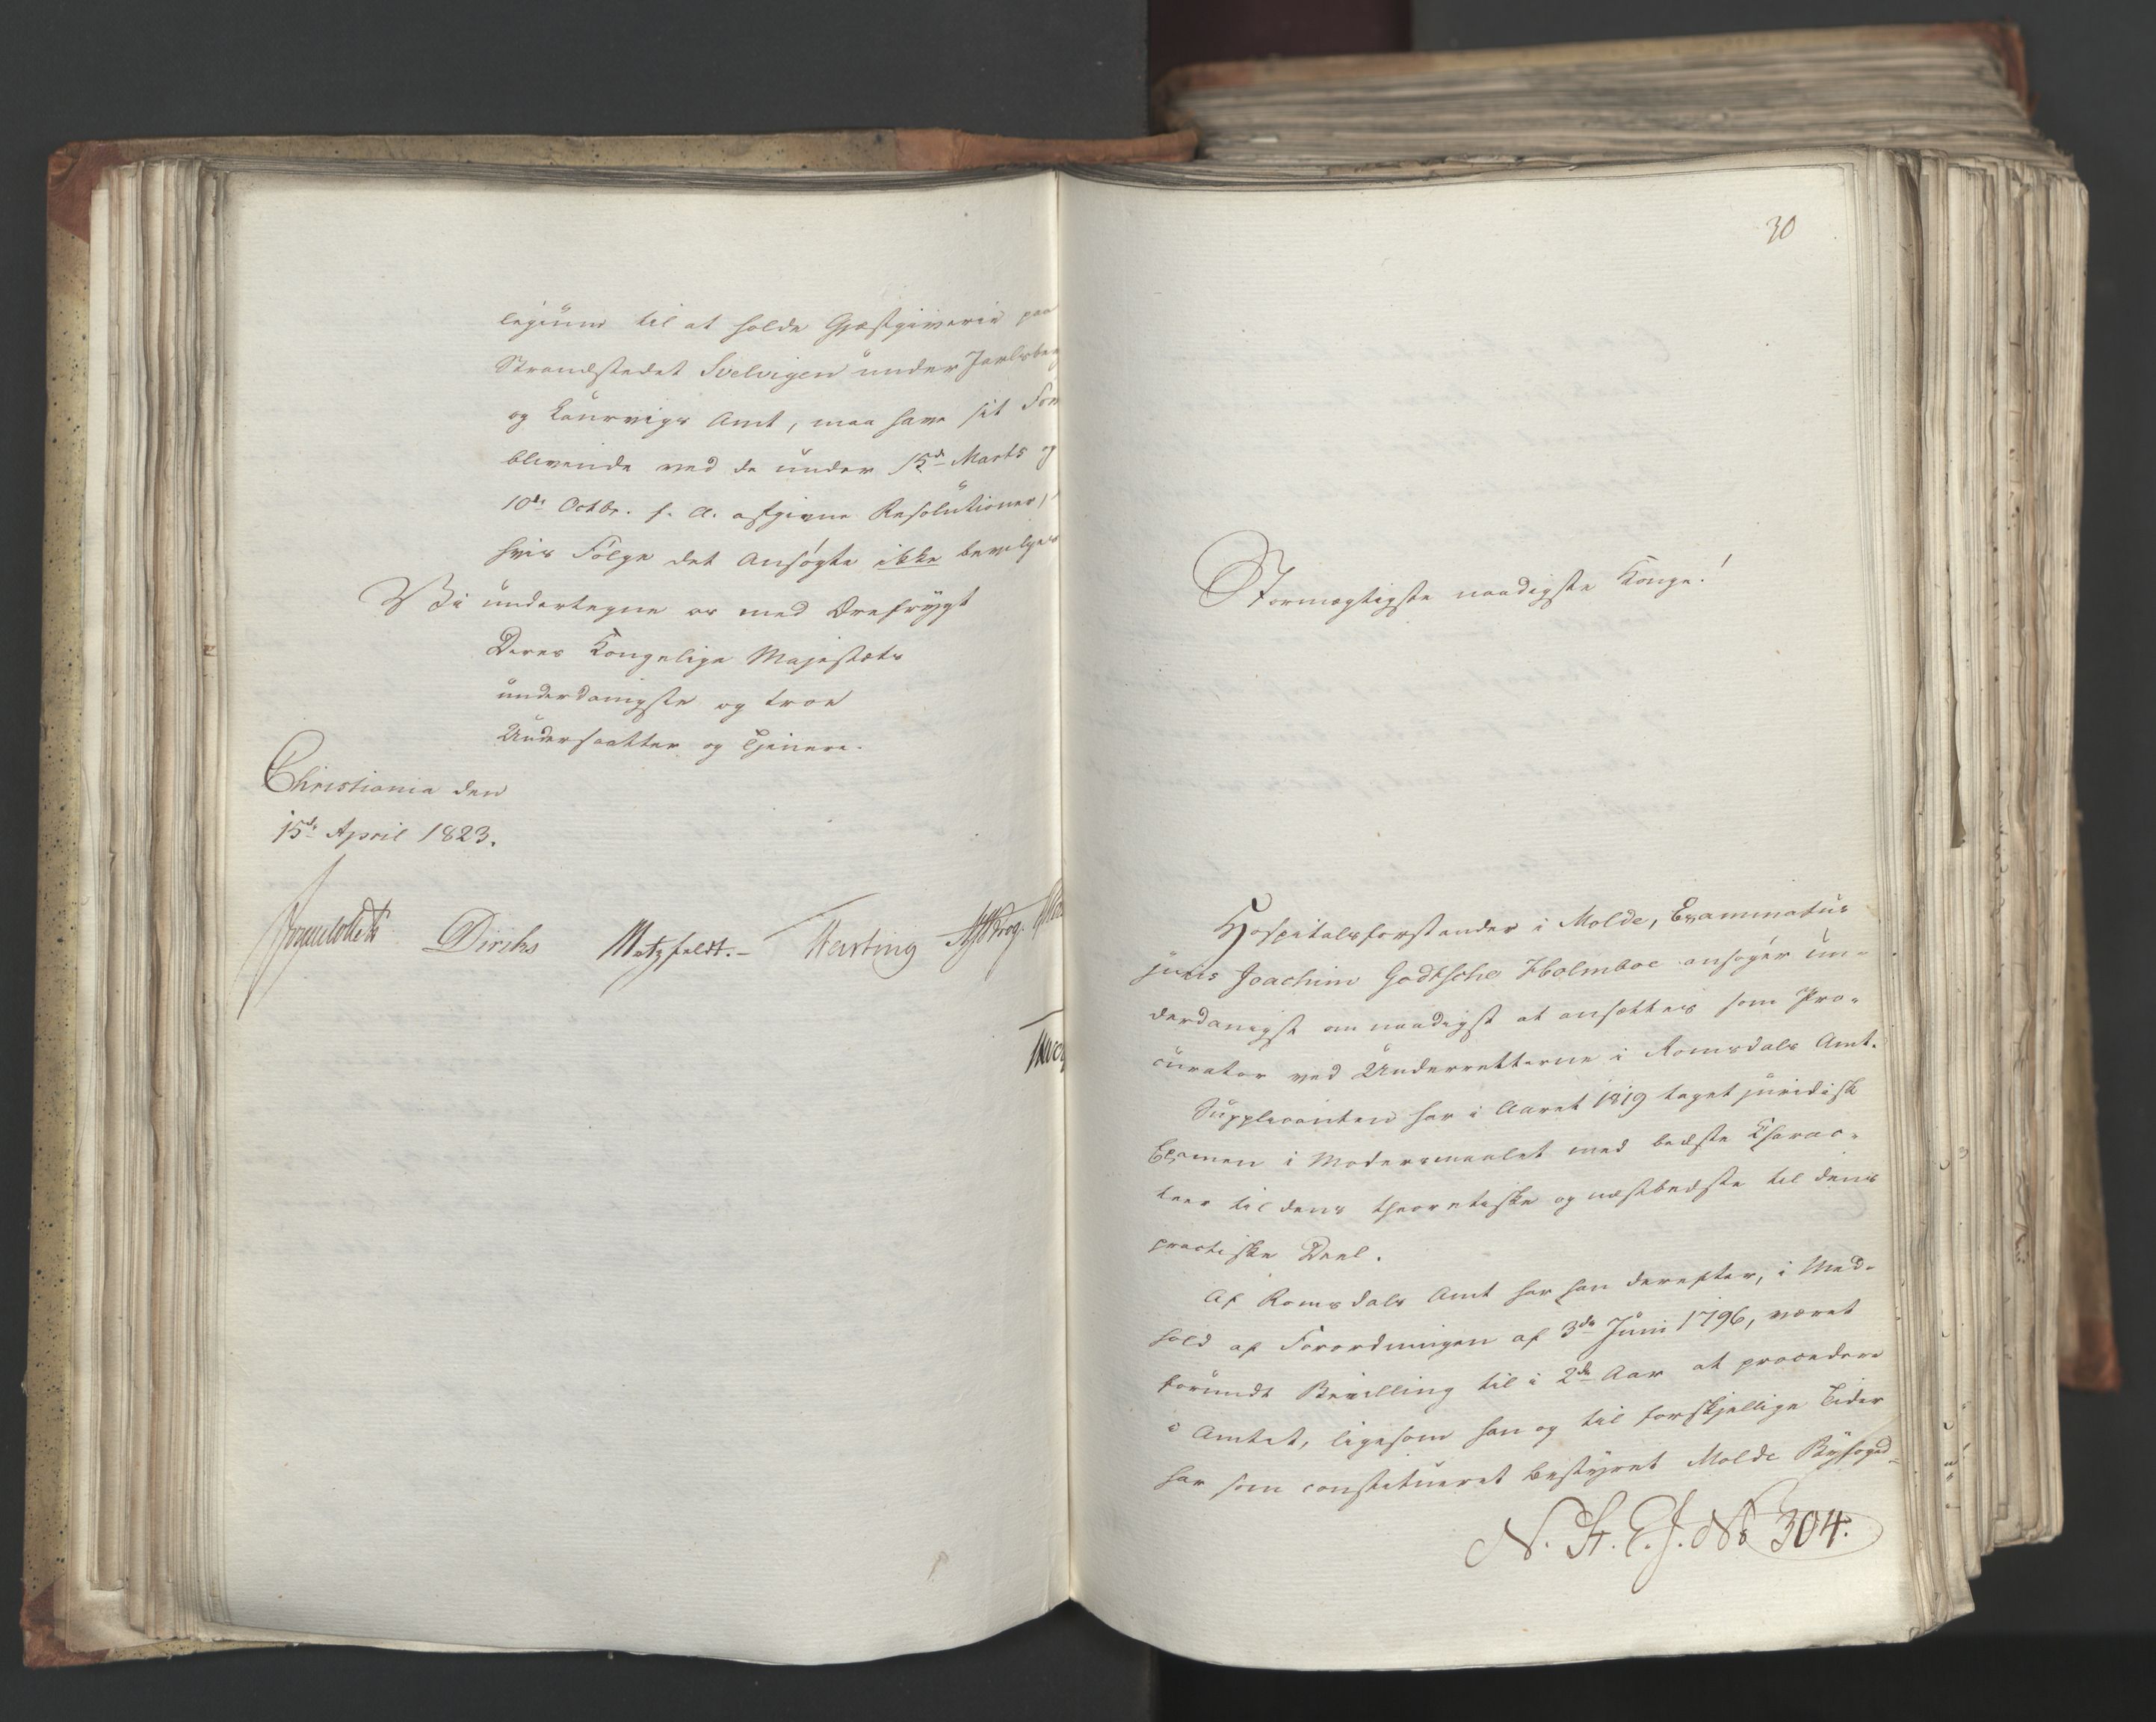 legium til at holde Gjæstgiverie paa
Strandstedet Svelvigen under Jarlsberg
og Laurvigs Amt, maa have sit For
blivende ved de under 15de Marts og
10de Octbr. f. A. afgivne Resolutioner, i
hvis Følge det Ansøgte ikke bevilges
Vi undertegne os med Ærefrygt
Deres Kongelige Majestæts
underdanigste og troe
Undersaatter og Tjenere.
Christiania den
15de April 1823.
Sommerhielm Diriks Motzfeldt. Hasting Krog.
30
Stormægtigste naadigste Konge!
Hospitalsforstander i Molde, Examinatus
juris Joachim Godtsche Holmboe ansøger un-
derdanigst om naadigst at ansættes som Pro-
curator ved Underretterne i Romsdals Amt.
Supplicanten har i Aaret 1819 taget juridisk
Examen i Modersmaalet med bedste Charac-
teer til dens theoretiske og næstbedste til dens
practiske Deel.
Af Romsdals Amt har han derefter, i Med-
hold af Forordningen af 3die Juni 1796, været
forundt Bevilling til i 2de Aar at procedere
i Amtet, ligesom han og til forskjellige Tider
har som constitueret bestyret Molde Byfoged-
N. St. E. J. No 304.